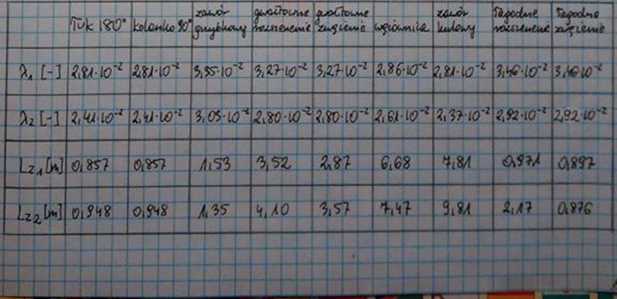 łuk 180° kolanko 90° zawór grzybkowy gwałtowne rozszerzenie gwałtowne zwężenie wężownica zawór kulowy łagodne rozszerzenie łagodne zwężenie
λ₁ [-] 2,81·10⁻² 2,81·10⁻² 3,35·10⁻² 3,27·10⁻² 3,27·10⁻² 2,86·10⁻² 2,81·10⁻² 3,46·10⁻² 3,46·10⁻²
λ₂ [-] 2,41·10⁻² 2,41·10⁻² 3,05·10⁻² 2,80·10⁻² 2,80·10⁻² 2,61·10⁻² 2,37·10⁻² 2,92·10⁻² 2,92·10⁻²
Lz₁ [m] 0,857 0,857 1,53 3,52 2,87 6,68 7,81 0,971 0,897
Lz₂ [m] 0,948 0,948 1,35 4,10 3,57 7,47 9,81 2,17 0,876